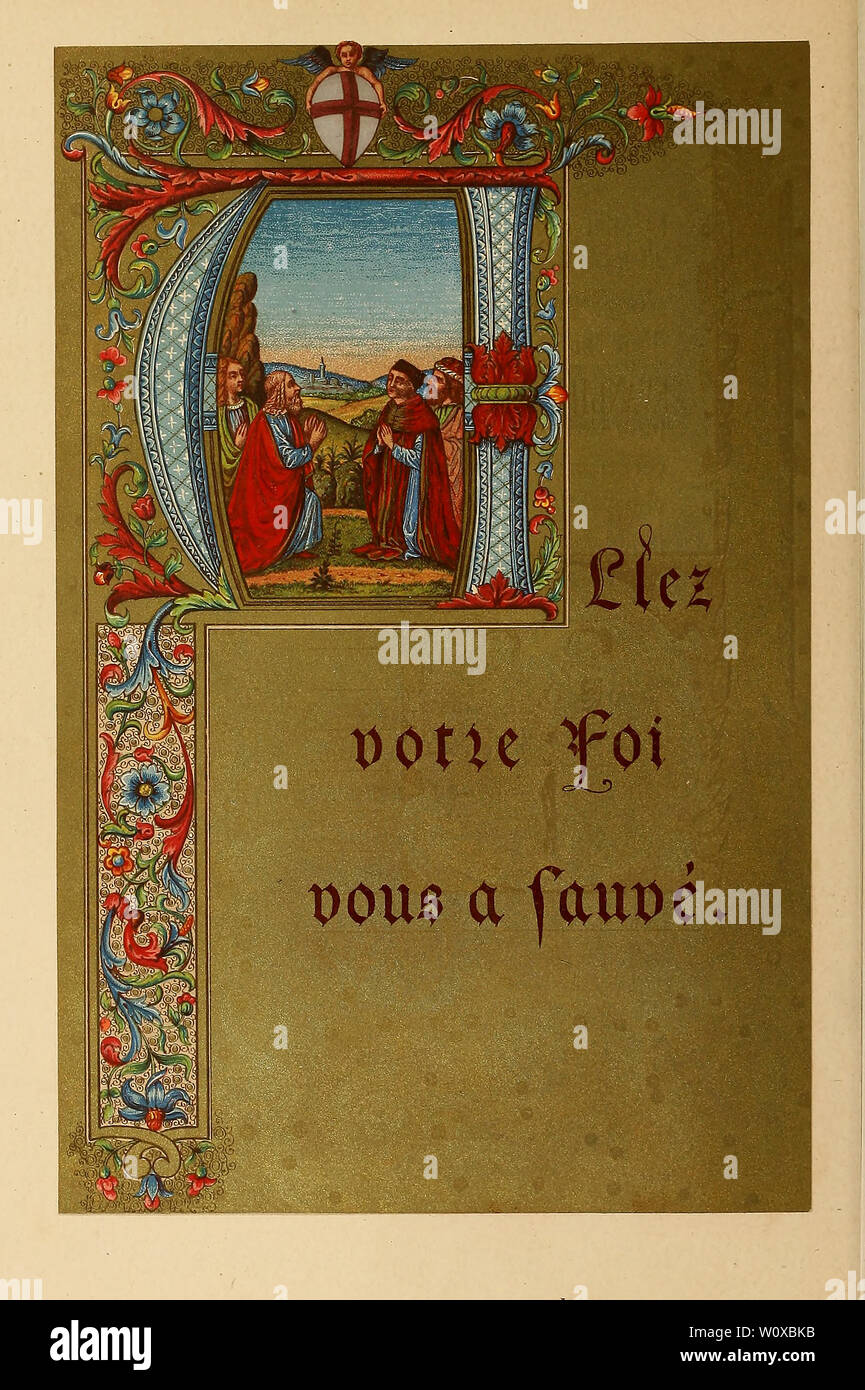 Allez
votre Foi
vous a sauvé.
alamy
Image ID: W0XBKB
www.alamy.com